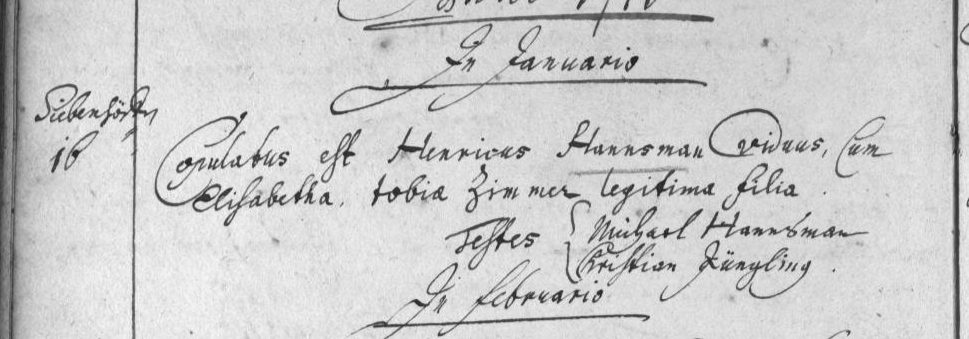 In Januario
16
Copulatus est Henricus Hannsman Viduus, Cum
Elisabetha, tobiæ Zimmer legitima filia.
Testes { Michael Hannsman
Christian Jüngling.
In februario